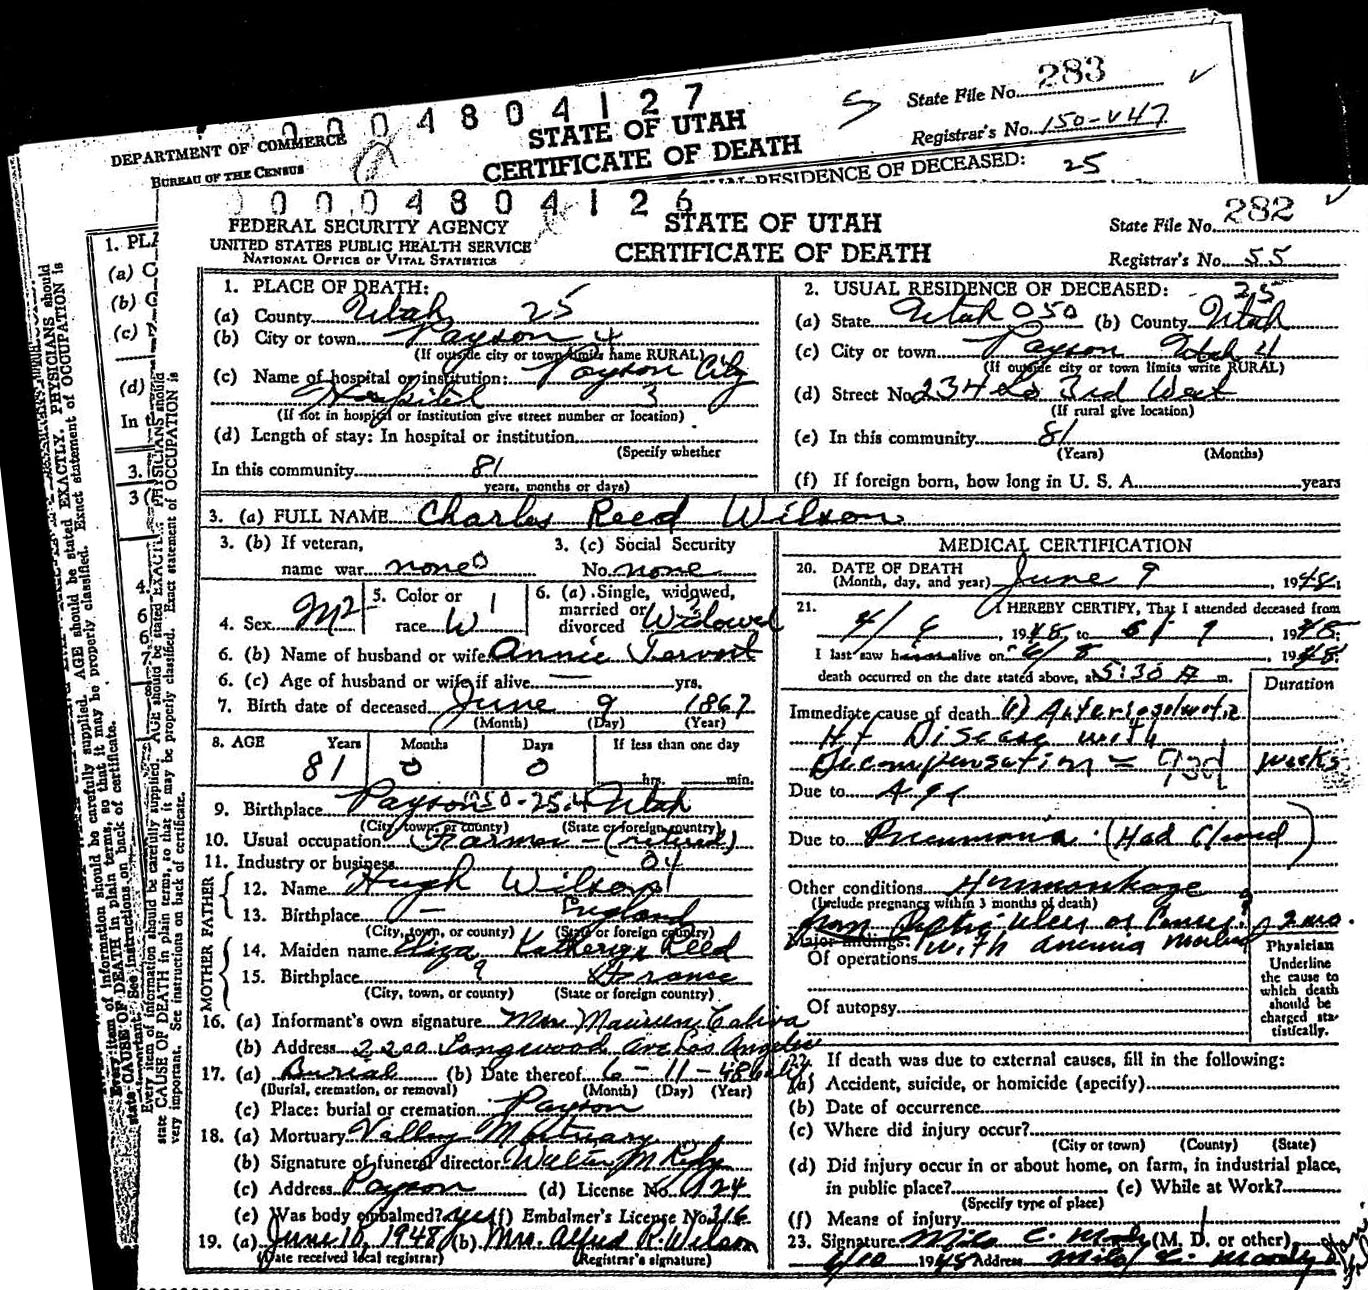 0004804127
DEPARTMENT OF COMMERCE
BUREAU OF THE CENSUS
STATE OF UTAH
CERTIFICATE OF DEATH
State File No. 283
Registrar's No. 150-V47
RESIDENCE OF DECEASED: 25
0004804126
FEDERAL SECURITY AGENCY
UNITED STATES PUBLIC HEALTH SERVICE
NATIONAL OFFICE OF VITAL STATISTICS
STATE OF UTAH
CERTIFICATE OF DEATH
State File No. 282
Registrar's No. 55
1. PLACE OF DEATH:
(a) County Utah 25
(b) City or town Payson 4
(If outside city or town limits name RURAL)
(c) Name of hospital or institution: Payson City
Hospital 3
(If not in hospital or institution give street number or location)
(d) Length of stay: In hospital or institution
(Specify whether
In this community 81
years, months or days)
2. USUAL RESIDENCE OF DECEASED: 25
(a) State Utah 050 (b) County Utah
(c) City or town Payson Utah 21
(If outside city or town limits write RURAL)
(d) Street No. 234 So 3rd West
(If rural give location)
(e) In this community 81
(Years) (Months)
(f) If foreign born, how long in U. S. A. years
3. (a) FULL NAME Charles Reed Wilson
3. (b) If veteran,
name war none 0
3. (c) Social Security
No. none
4. Sex M 2
5. Color or
race W 1
6. (a) Single, widowed,
married or
divorced Widowed
6. (b) Name of husband or wife Annie
6. (c) Age of husband or wife if alive — yrs.
7. Birth date of deceased June 9 1867
(Month) (Day) (Year)
8. AGE Years Months Days If less than one day
81 0 0 hrs. min.
9. Birthplace Payson 050-25.4 Utah
(City, town, or county) (State or foreign country)
10. Usual occupation Farmer - (retired)
11. Industry or business 04
FATHER
12. Name Hugh Wilson
13. Birthplace — England
(City, town, or county) (State or foreign country)
MOTHER
14. Maiden name Eliza Reed
15. Birthplace ?
(City, town, or county) (State or foreign country)
16. (a) Informant's own signature Mrs Maureen
(b) Address 2200 Longwood Ave Los Angeles
17. (a) Burial (b) Date thereof 6-11-48
(Burial, cremation, or removal) (Month) (Day) (Year)
(c) Place: burial or cremation Payson
18. (a) Mortuary Valley Mortuary
(b) Signature of funeral director Walter M
(c) Address Payson (d) License No. 124
(e) Was body embalmed? yes (f) Embalmer's License No. 316
19. (a) June 10, 1948 (b) Mrs. Alfred R. Wilson
(Date received local registrar) (Registrar's signature)
MEDICAL CERTIFICATION
20. DATE OF DEATH
(Month, day, and year) June 9, 1948.
21. I HEREBY CERTIFY, That I attended deceased from
4/6, 1948, to 6/9, 1948;
I last saw him alive on 6/8 1948
death occurred on the date stated above, at 5:30 A m.
Duration
Immediate cause of death (1)
Ht Disease with
Decompensation weeks
Due to Age
Due to Pneumonia (Had Cleared)
Other conditions Hemorrhage
(Include pregnancy within 3 months of death)
from Peptic Ulcer or Cancer? 2 mo.
Major findings: with anemia marked
Of operations
Of autopsy
Physician
Underline
the cause to
which death
should be
charged sta-
tistically.
22. If death was due to external causes, fill in the following:
(a) Accident, suicide, or homicide (specify)
(b) Date of occurrence
(c) Where did injury occur?
(City or town) (County) (State)
(d) Did injury occur in or about home, on farm, in industrial place,
in public place? (e) While at Work?
(Specify type of place)
(f) Means of injury
23. Signature Milo C. Moody (M. D. or other)
6/10 1948 Address Milo C. Moody